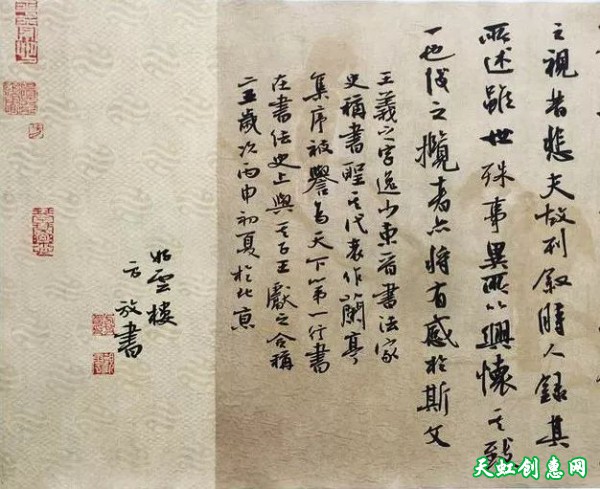 之視昔悲夫故列叙時人錄其
所述雖世殊事異所以興懷其致
一也後之攬者亦將有感於斯文
王羲之字逸少東晉書法家
史稱書聖其代表作蘭亭
集序被譽為天下第一行書
在書法史上與其子王獻之合稱
二王歲次丙申初夏於北京
樓
放書
天虹创惠网